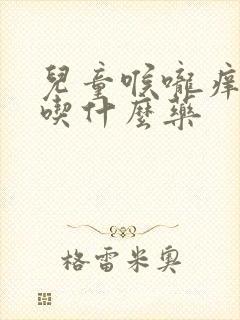 兒童喉嚨痒
喫什麼藥
格雷米奧